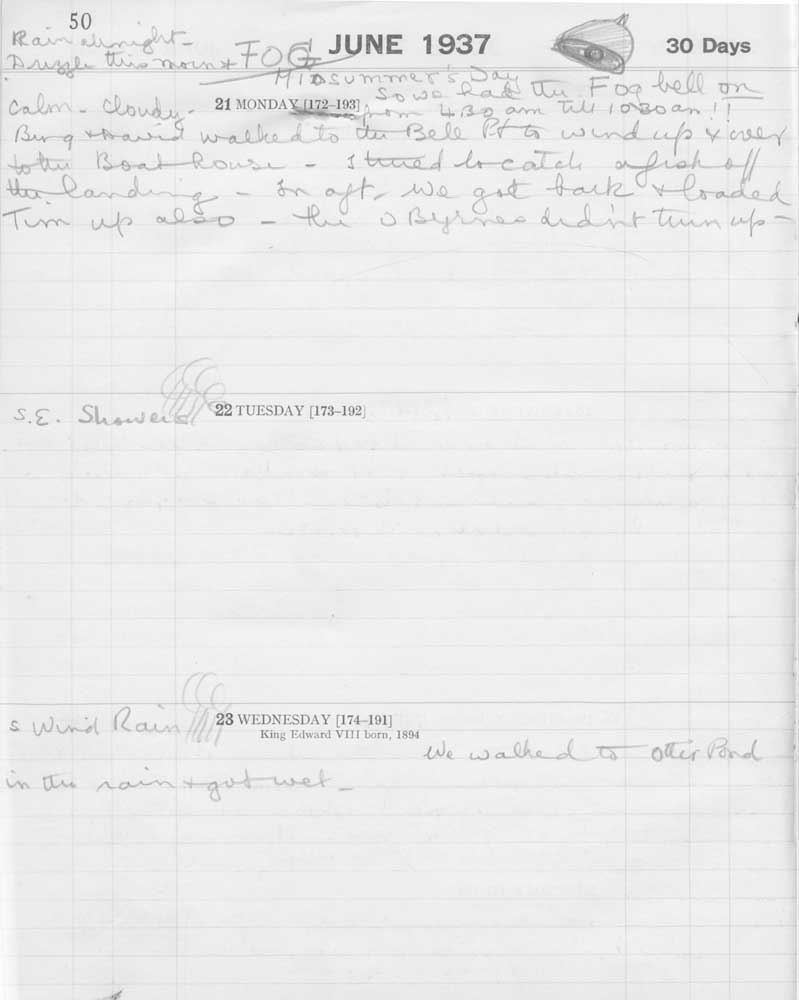 50
Rain all night -
Drizzle this morn & FOG JUNE 1937 30 Days
Midsummer's Day
So we had the Fog bell on
Calm - Cloudy - 21 MONDAY [172–193] from 4 30 am till 10 30 am !!
walked to the Bell Pt to wind up & over
to the Boat house - I tried to catch a fish off
the landing - In aft. we got back & loaded
Tim up also - the O Byrnes didn't turn up -
S.E. Showers 22 TUESDAY [173–192]
S Wind Rain 23 WEDNESDAY [174–191]
King Edward VIII born, 1894
We walked to Otter Pond
in the rain & got wet -